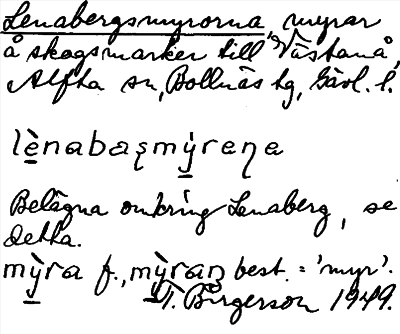 Lenabergsmyrorna, myrar
å skogsmarker till Västanå,
Alfta sn, Bollnäs tg, Gävl. l.
lè̠nabaʂmỳ̠rɐɳa
Belägna omkring Lenaberg, se
detta.
mỳ̠ra f., mỳ̠ran best. = 'myr'.
T. Birgerson 1949.